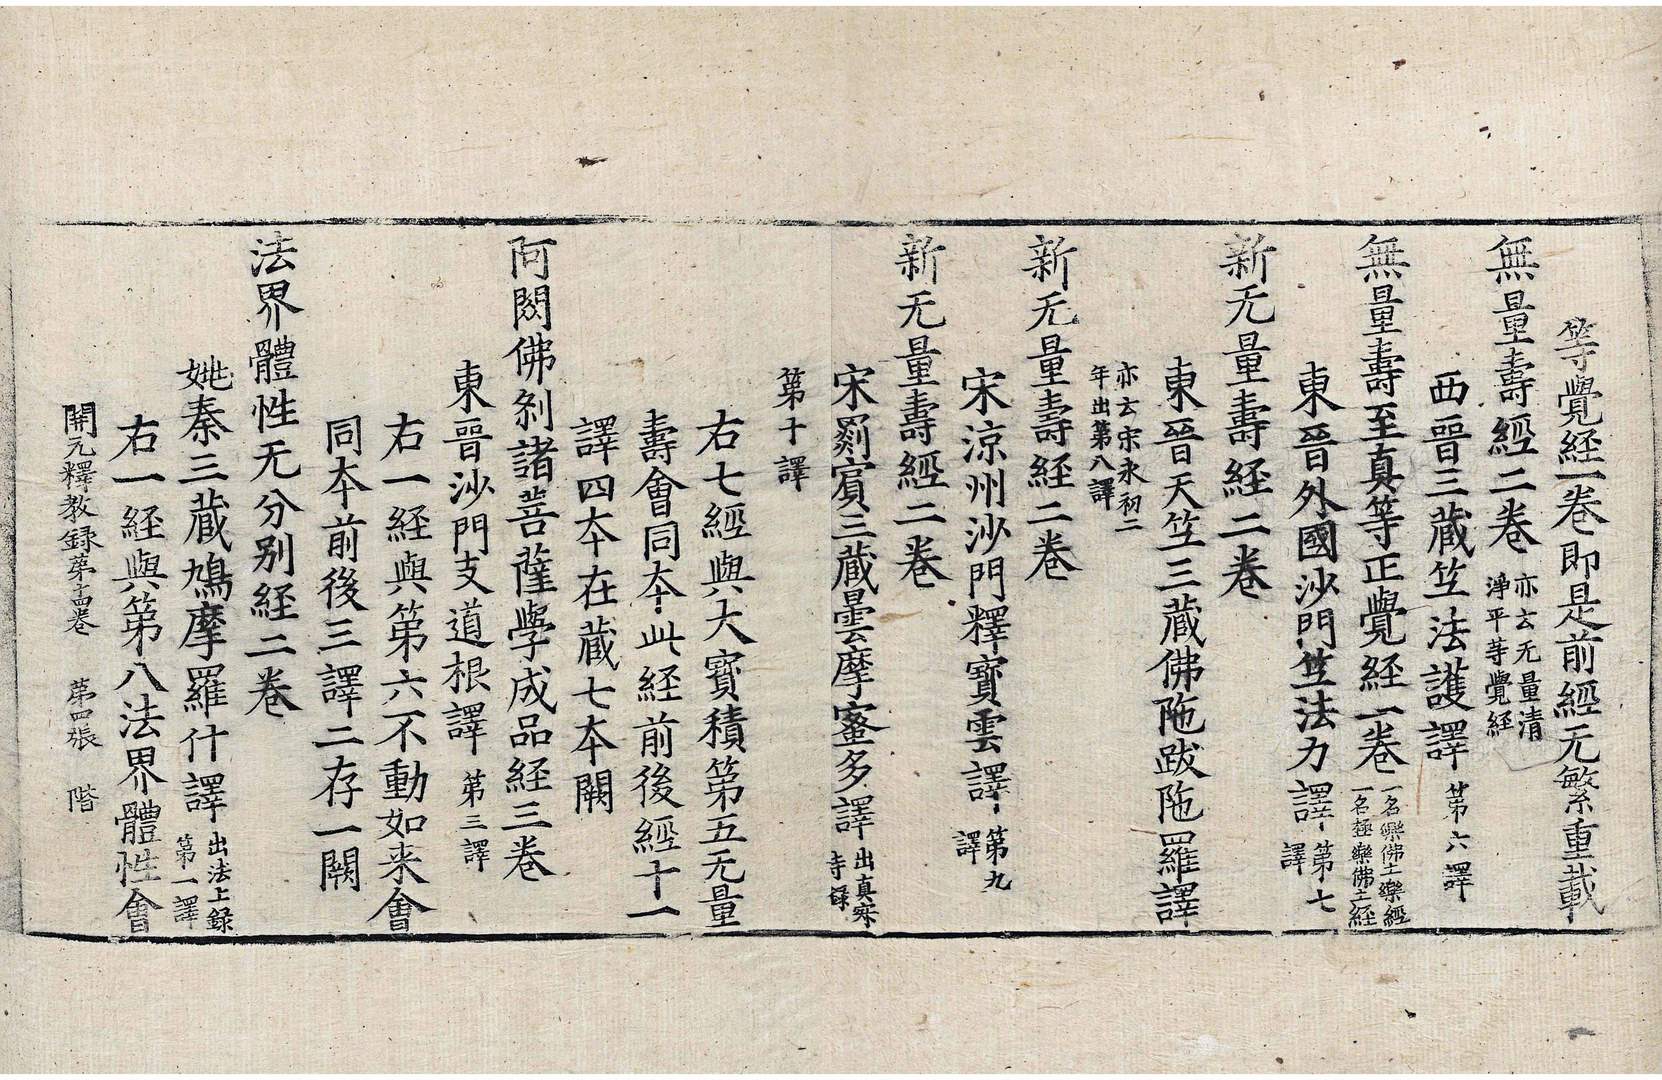 等覺經一卷即是前經无繁重載
無量壽經二卷 亦云无量清淨平等覺経
西晉三藏竺法護譯 第六譯
無量壽至真等正覺經一卷 一名樂佛土樂經一名極樂佛土經
東晉外國沙門竺法力譯 第七譯
新无量壽経二卷
東晉天竺三藏佛陁跋陁羅譯
亦云宋永初二年出第八譯
新无量壽経二卷
宋涼州沙門釋寶雲譯 第九譯
新无量壽經二卷
宋罽賓三藏曇摩蜜多譯 出真寂寺録
第十譯
右七經與大寳積第五无量
壽會同夲此経前後經十一
譯四夲在藏七夲闕
阿閦佛刹諸菩薩學成品経三卷
東晉沙門支道根譯 第三譯
右一経與第六不動如来會
同夲前後三譯二存一闕
法界體性无分別経二卷
姚秦三藏鳩摩羅什譯 出法上録第一譯
右一経與第八法界體性會
開元釋教録第十四卷 第四張 階